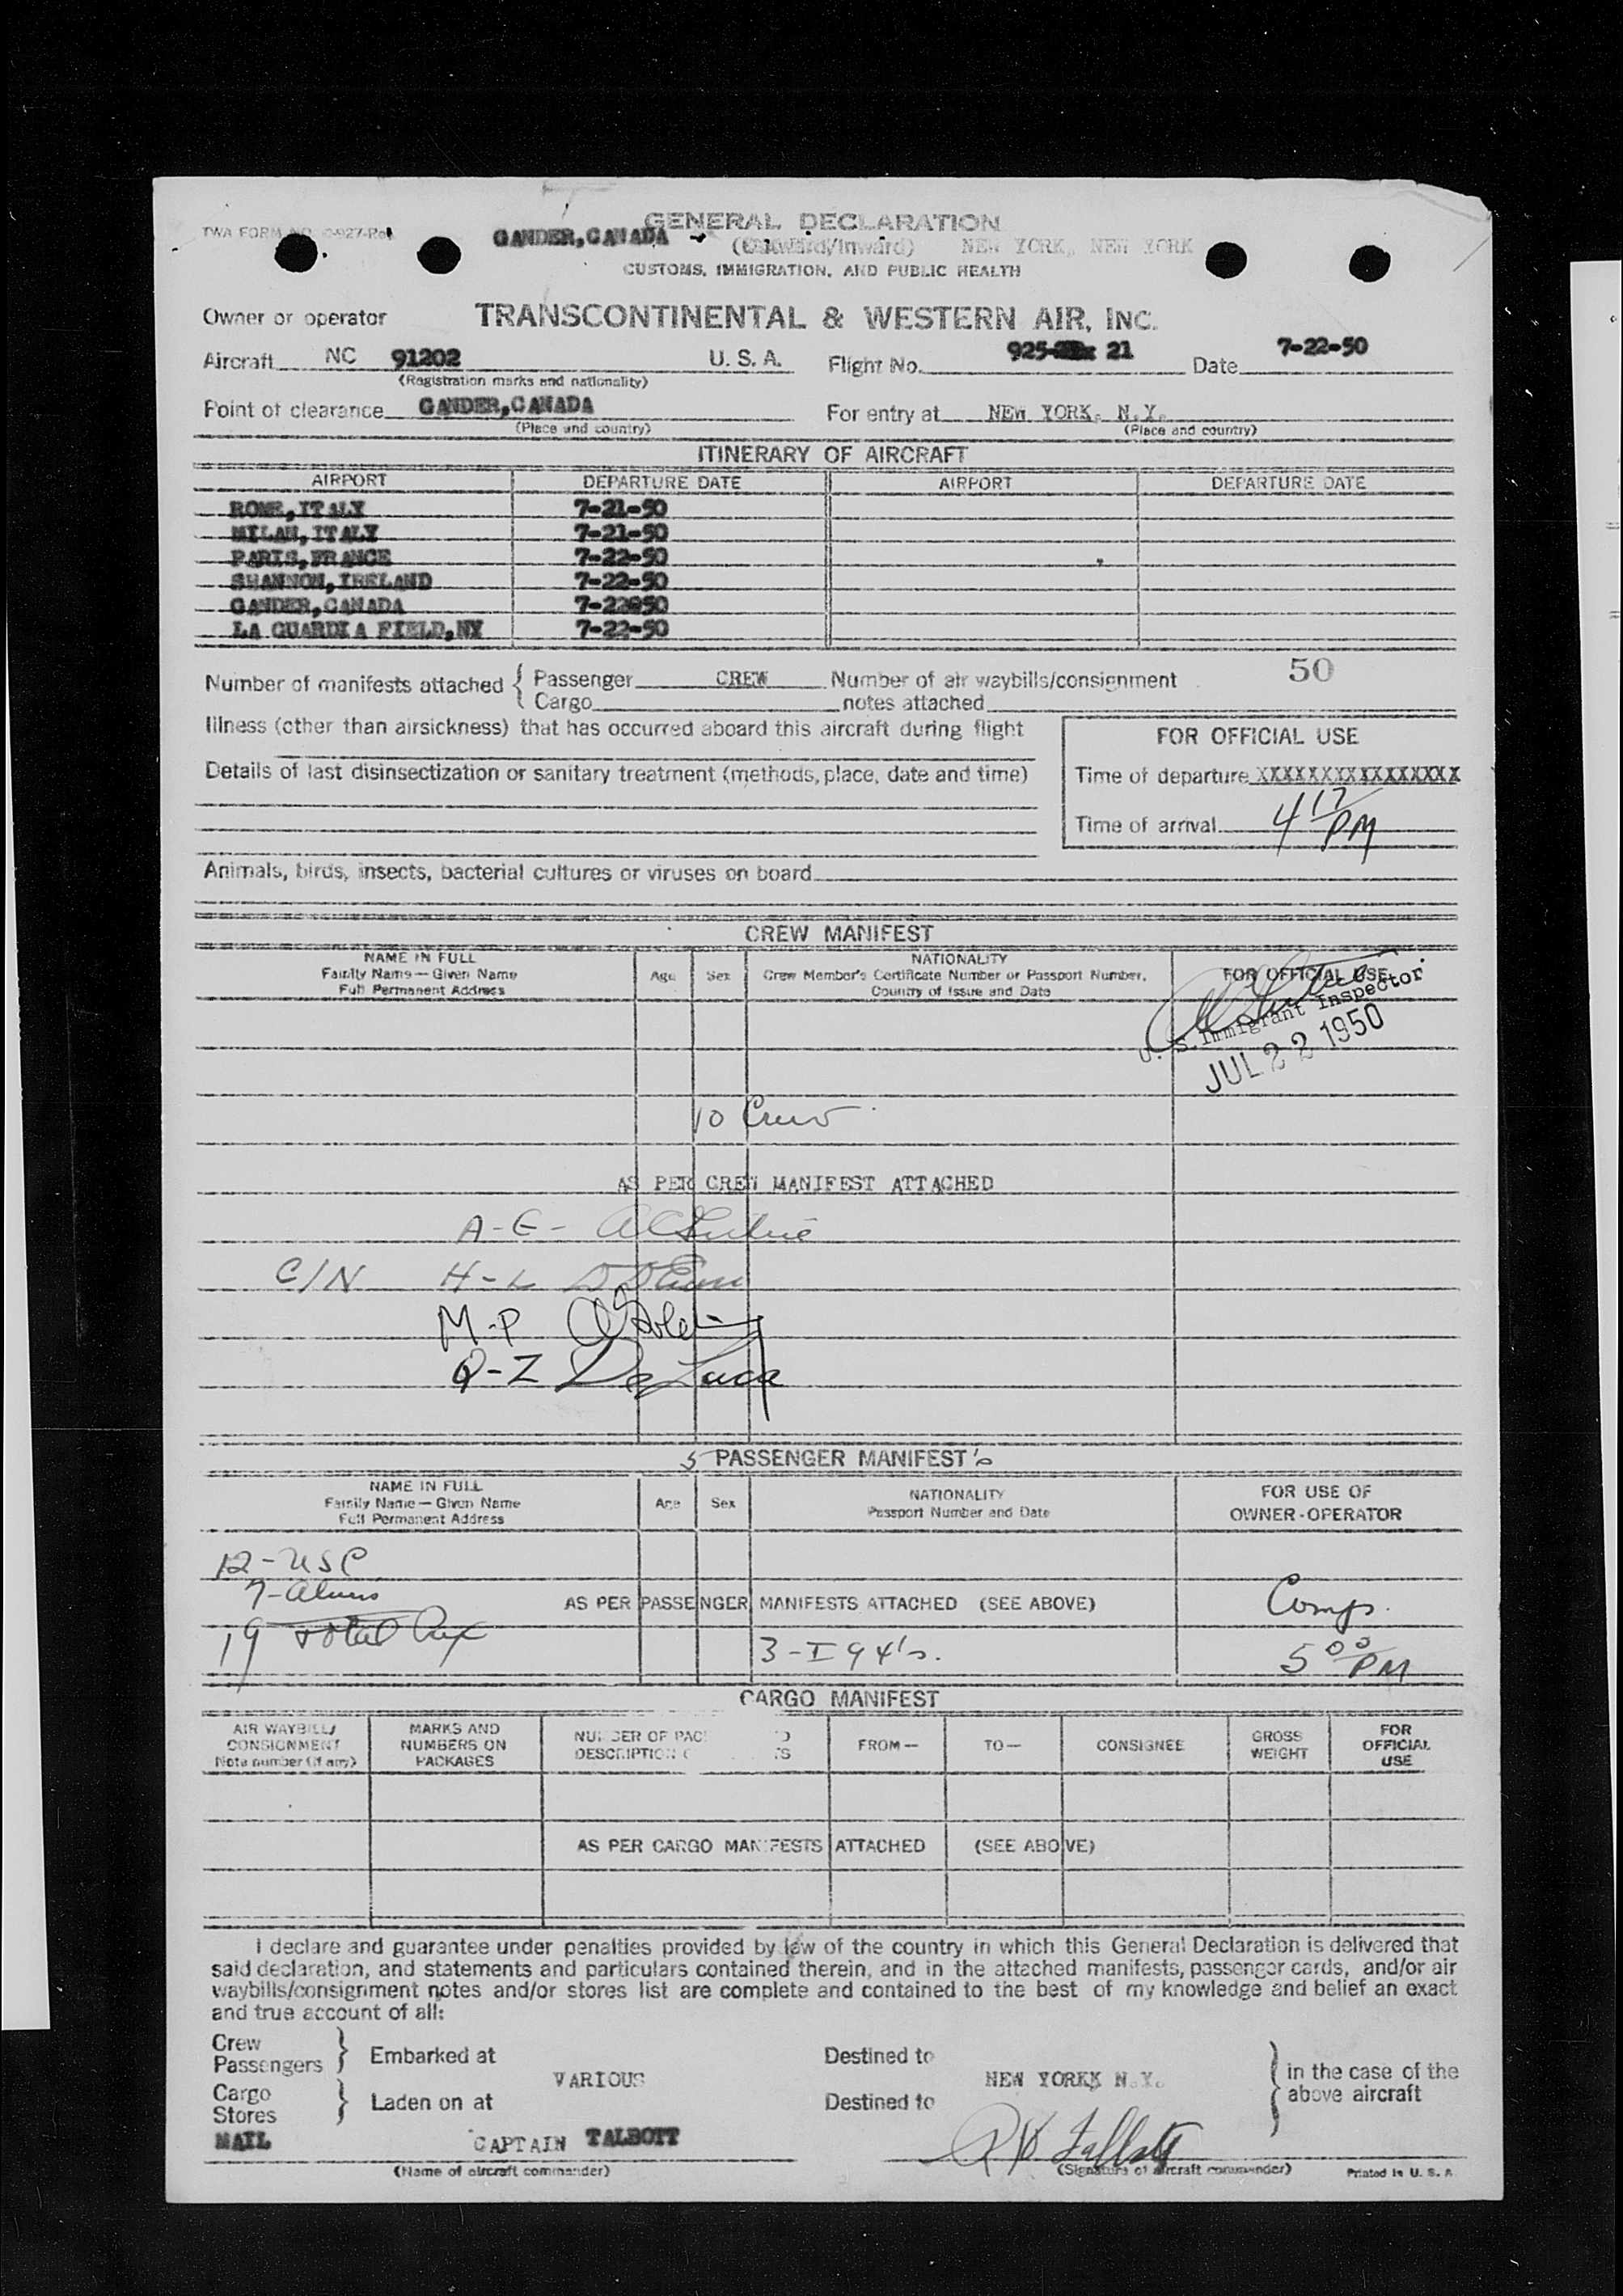 TWA FORM NO. C-927-Re
GENERAL DECLARATION
GANDER, CANADA (Outward/Inward) NEW YORK, NEW YORK
CUSTOMS, IMMIGRATION, AND PUBLIC HEALTH
Owner or operator TRANSCONTINENTAL & WESTERN AIR, INC.
Aircraft NC 91202 U. S. A. Flight No. 925- 21 Date 7-22-50
(Registration marks and nationality)
Point of clearance GANDER, CANADA For entry at NEW YORK, N.Y.
(Place and country) (Place and country)
ITINERARY OF AIRCRAFT
AIRPORT DEPARTURE DATE AIRPORT DEPARTURE DATE
ROME, ITALY 7-21-50
MILAN, ITALY 7-21-50
PARIS, FRANCE 7-22-50
SHANNON, IRELAND 7-22-50
GANDER, CANADA 7-22050
LA GUARDIA FIELD, NY 7-22-50
50
Number of manifests attached { Passenger CREW Number of air waybills/consignment
Cargo notes attached
Illness (other than airsickness) that has occurred aboard this aircraft during flight
FOR OFFICIAL USE
Details of last disinsectization or sanitary treatment (methods, place, date and time)
Time of departure XXXXXXXXXXXXXXXX
Time of arrival 4 17 PM
Animals, birds, insects, bacterial cultures or viruses on board
CREW MANIFEST
NAME IN FULL
Family Name — Given Name
Full Permanent Address
Age Sex
NATIONALITY
Crew Member's Certificate Number or Passport Number,
Country of Issue and Date
FOR OFFICIAL USE
U. S. Immigrant Inspector
JUL 22 1950
10 Crew
AS PER CREW MANIFEST ATTACHED
A-G-
C/N H-L
M-P
Q-Z De Luca
5 PASSENGER MANIFEST's
NAME IN FULL
Family Name — Given Name
Full Permanent Address
Age Sex
NATIONALITY
Passport Number and Date
FOR USE OF
OWNER-OPERATOR
12-USC
7-aliens
AS PER PASSENGER MANIFESTS ATTACHED (SEE ABOVE) Comp.
19 total Pax 3-I 94's. 5 00 PM
CARGO MANIFEST
AIR WAYBILL/
CONSIGNMENT
Note number (if any)
MARKS AND
NUMBERS ON
PACKAGES
NUMBER OF PAC
DESCRIPTION
FROM —
TO —
CONSIGNEE
GROSS
WEIGHT
FOR
OFFICIAL
USE
AS PER CARGO MANIFESTS ATTACHED (SEE ABOVE)
I declare and guarantee under penalties provided by law of the country in which this General Declaration is delivered that
said declaration, and statements and particulars contained therein, and in the attached manifests, passenger cards, and/or air
waybills/consignment notes and/or stores list are complete and contained to the best of my knowledge and belief an exact
and true account of all:
Crew
Passengers } Embarked at Destined to
VARIOUS NEW YORKK N.Y. in the case of the
Cargo above aircraft
Stores } Laden on at Destined to
MAIL CAPTAIN TALBOTT R H Talbott
(Name of aircraft commander) (Signature of aircraft commander) Printed in U. S. A.